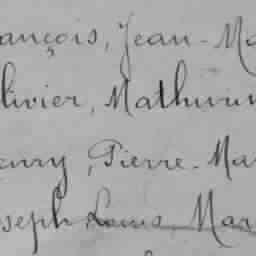 ançois, Jean-Ma
livier, Mathurin
enry, Pierre-Mar
seph Louis, Mar